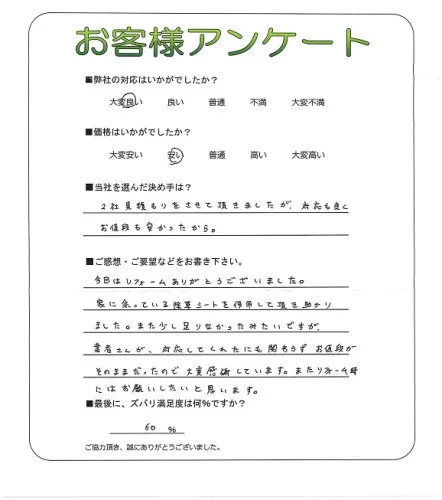 お客様アンケート
■弊社の対応はいかがでしたか？
大変良い 良い 普通 不満 大変不満
■価格はいかがでしたか？
大変安い 安い 普通 高い 大変高い
■当社を選んだ決め手は？
2社見積もりをさせて頂きましたが、対応も良く
お値段も安かったから。
■ご感想・ご要望などをお書き下さい。
今日はリフォームありがとうございました。
家に余っている除草シートを使用して頂き助かり
ました。また少し足りなかったみたいですが、
業者さんが、対応してくれたにも関わらず お値段が
そのままだったので大変感謝しています。またリフォーム時
にはお願いしたいと思います。
■最後に、ズバリ満足度は何％ですか？
60 %
ご協力頂き、誠にありがとうございました。